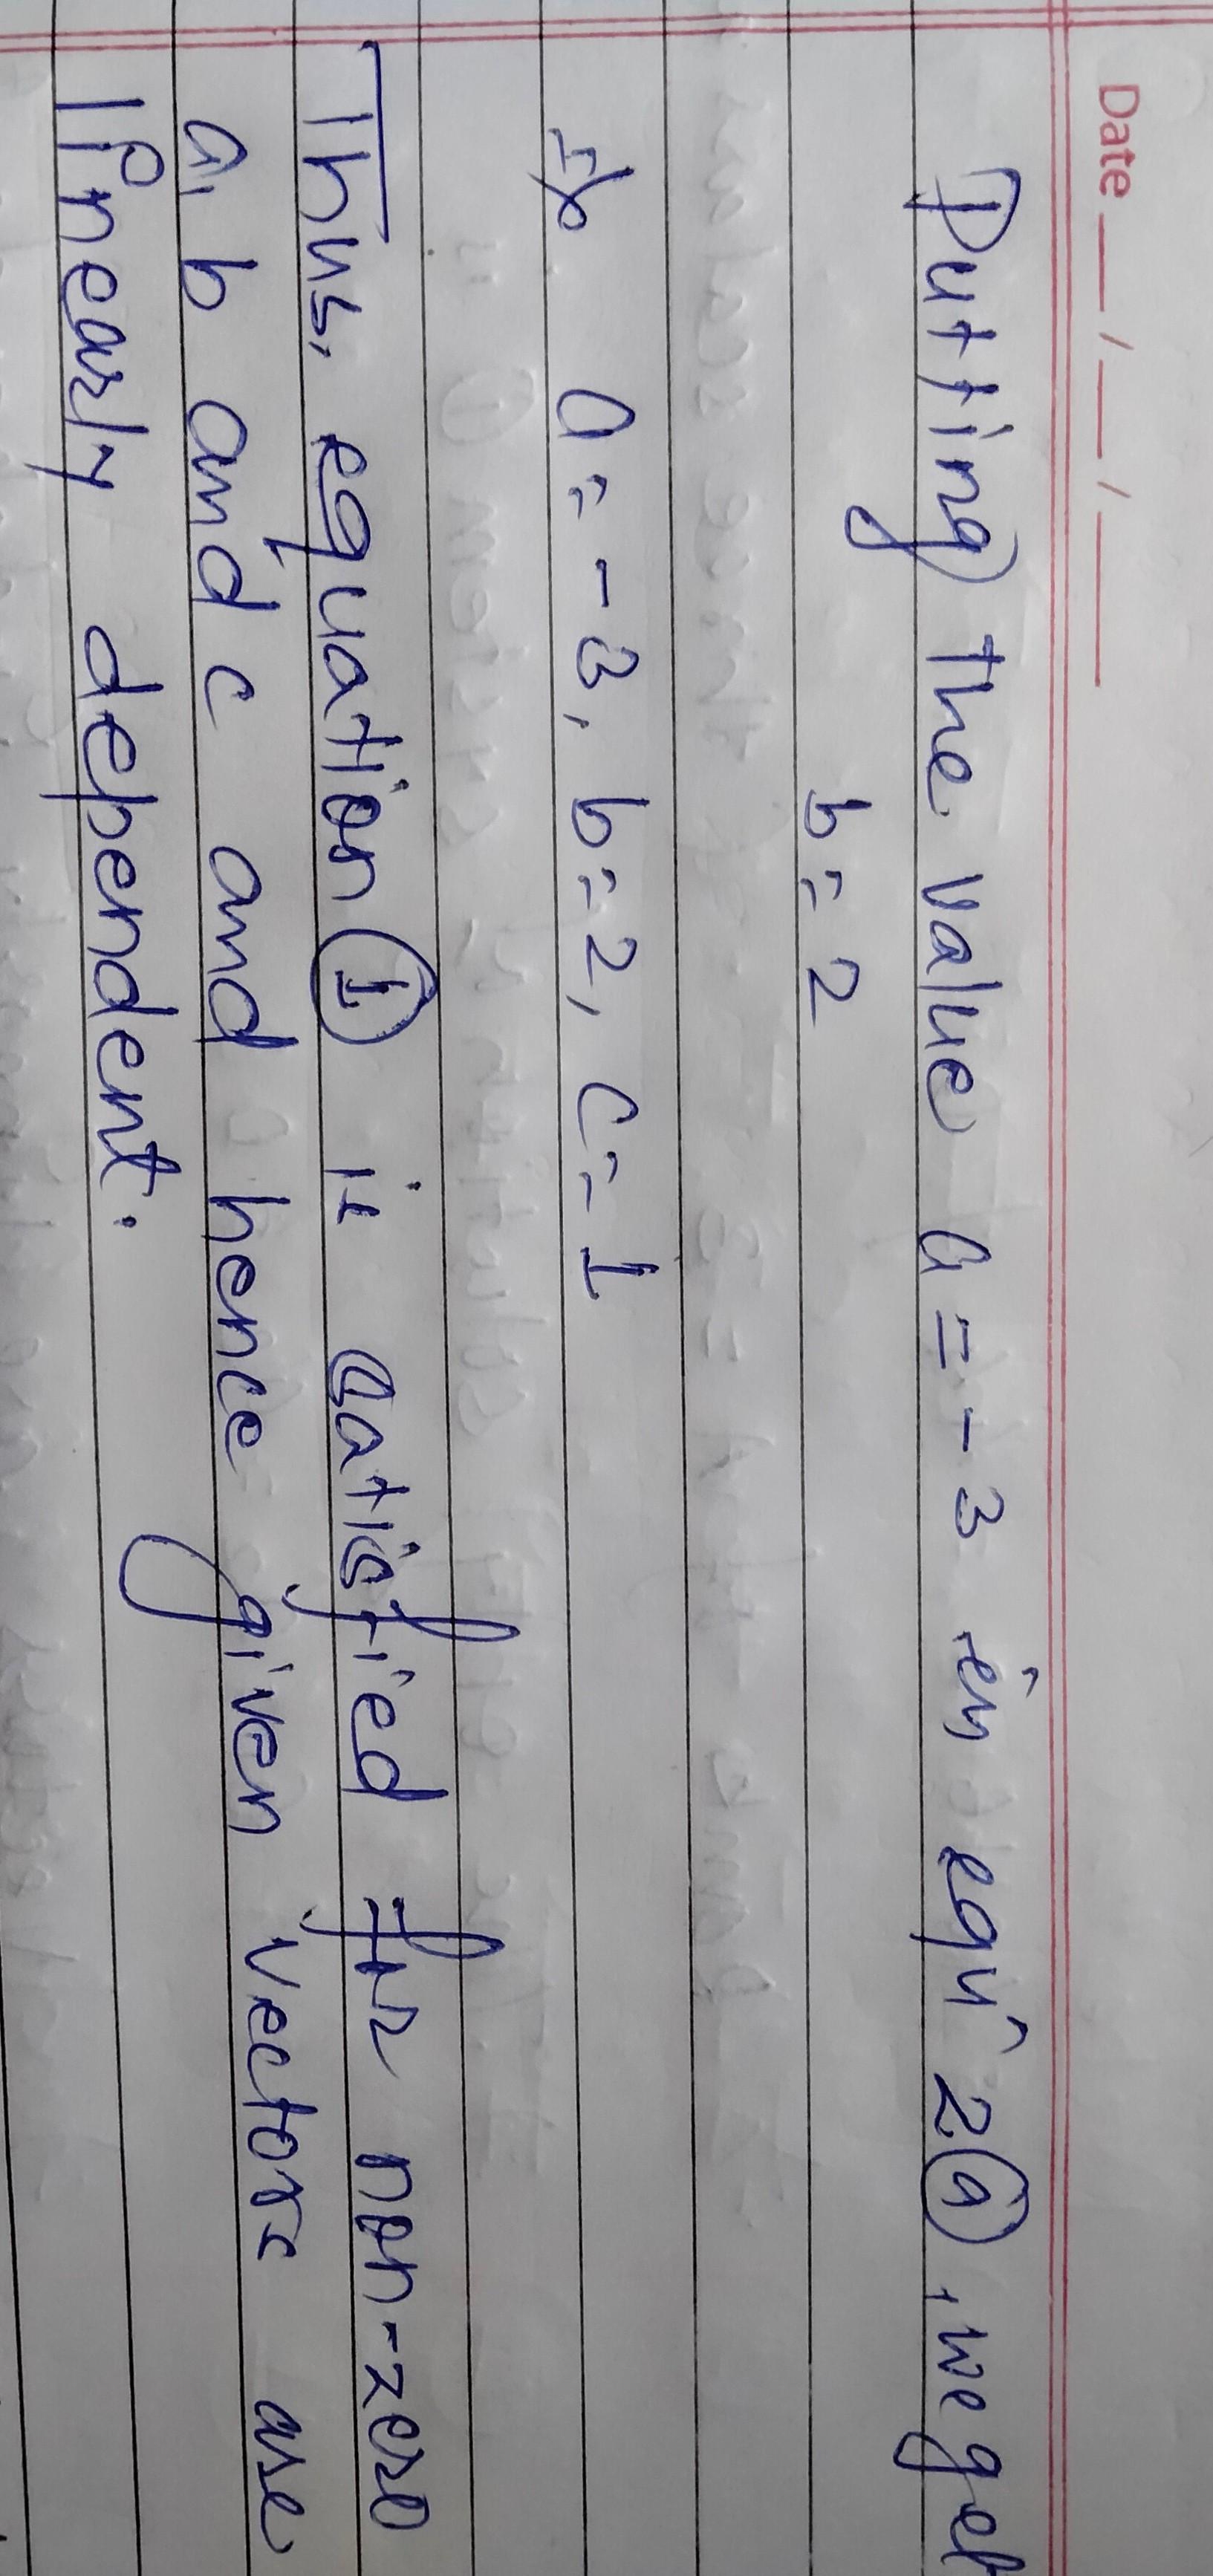 Date __/__/__
Putting the value a = -3 in equⁿ 2(a), we get
b = 2
a = -3, b = 2, c = 1
Thus, equation (1) is satisfied for non-zero
a, b and c and hence given vectors are
linearly dependent.